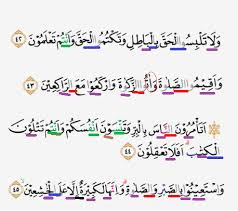 وَلَا تَلْبِسُوا الْحَقَّ بِالْبَاطِلِ وَتَكْتُمُوا الْحَقَّ وَأَنْتُمْ تَعْلَمُوْنَ ٤٢
وَأَقِيْمُوا الصَّلٰوةَ وَآتُوا الزَّكٰوةَ وَارْكَعُوْا مَعَ الرَّاكِعِيْنَ ٤٣
اَتَأْمُرُوْنَ النَّاسَ بِالْبِرِّ وَتَنْسَوْنَ اَنْفُسَكُمْ وَاَنْتُمْ تَتْلُوْنَ
الْكِتٰبَ اَفَلَا تَعْقِلُوْنَ ٤٤
وَاسْتَعِيْنُوْا بِالصَّبْرِ وَالصَّلٰوةِ وَاِنَّهَا لَكَبِيْرَةٌ اِلَّا عَلَى الْخٰشِعِيْنَ ٤٥